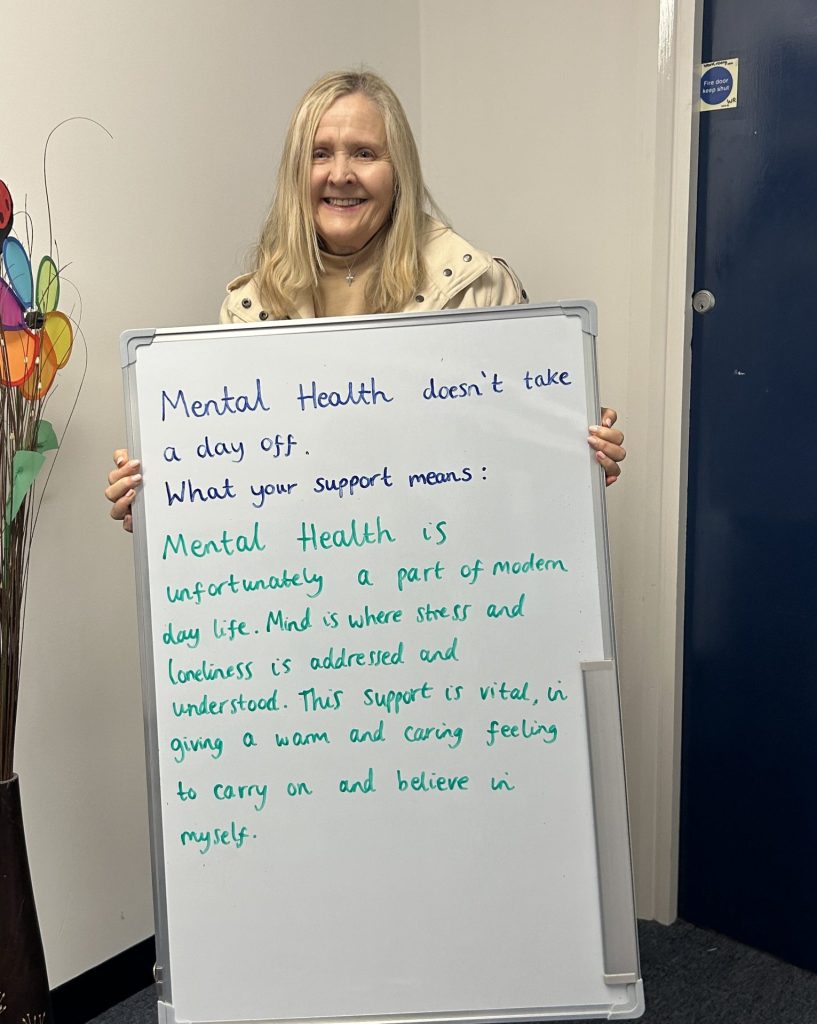 Mental Health doesn't take
a day off.
What your support means:
Mental Health is
unfortunately a part of modern
day life. Mind is where stress and
loneliness is addressed and
understood. This support is vital, in
giving a warm and caring feeling
to carry on and believe in
myself.
Fire door
keep shut